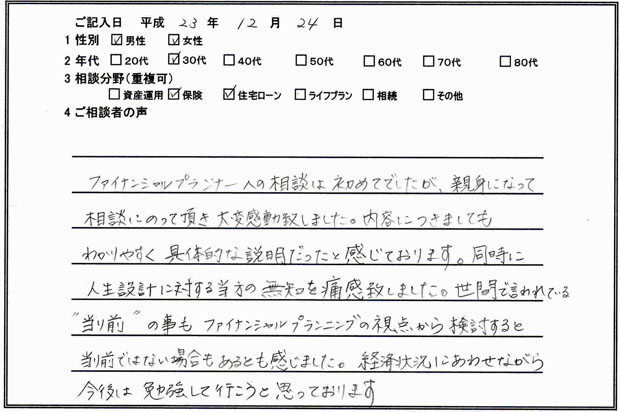 ご記入日 平成 23 年 12 月 24 日
1 性別 ☑男性 ☑女性
2 年代 □20代 ☑30代 □40代 □50代 □60代 □70代 □80代
3 相談分野(重複可)
□資産運用 ☑保険 ☑住宅ローン □ライフプラン □相続 □その他
4 ご相談者の声
ファイナンシャルプランナーへの相談は初めてでしたが、親身になって
相談にのって頂き大変感動致しました。内容につきましても
わかりやすく具体的な説明だったと感じております。同時に
人生設計に対する当方の無知を痛感致しました。世間で言われている
"当り前"の事もファイナンシャルプランニングの視点から検討すると
当り前ではない場合もあるとも感じました。経済状況にあわせながら
今後は勉強して行こうと思っております